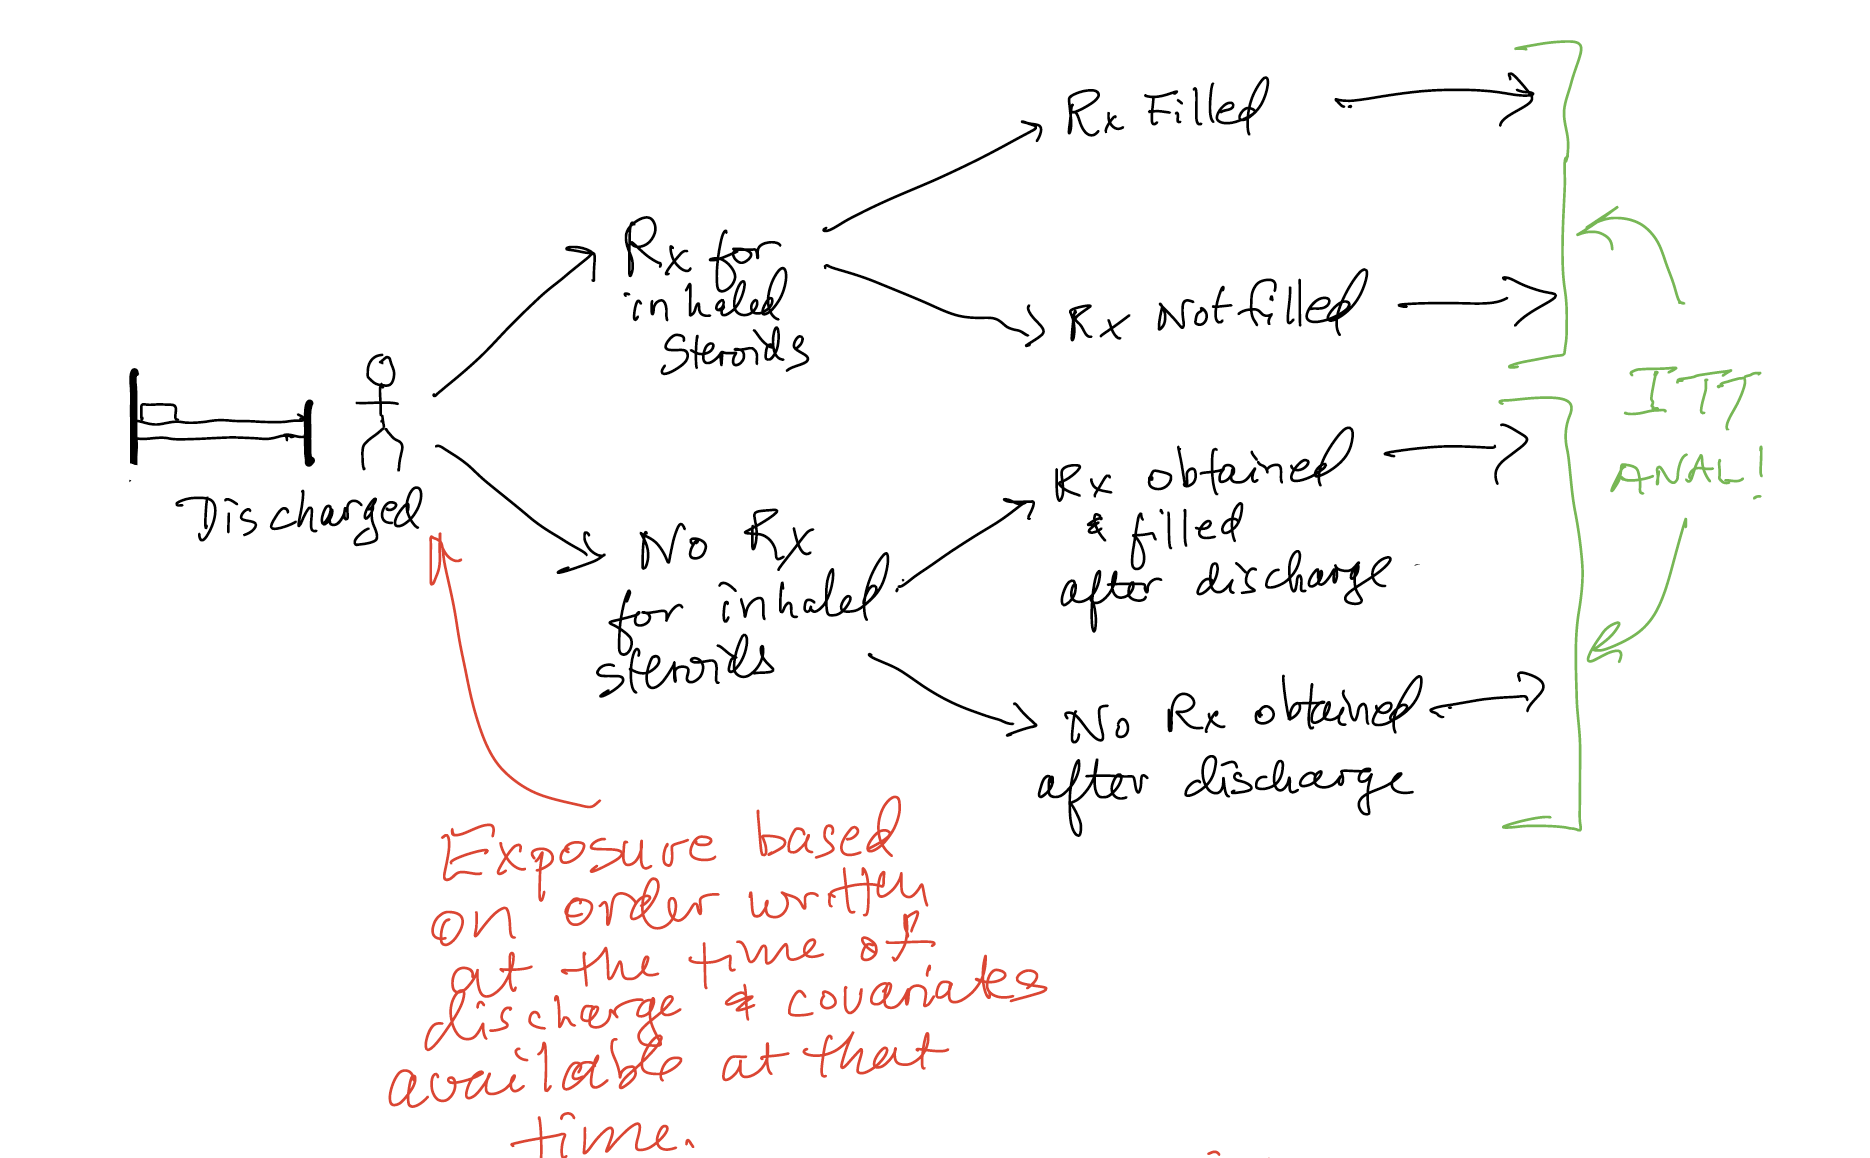 Discharged
Rx for
inhaled
steroids
Rx Filled
Rx Not filled
No Rx
for inhaled
steroids
Rx obtained
& filled
after discharge
No Rx obtained
after discharge
ITT
ANAL!
Exposure based
on order written
at the time of
discharge & covariates
available at that
time.